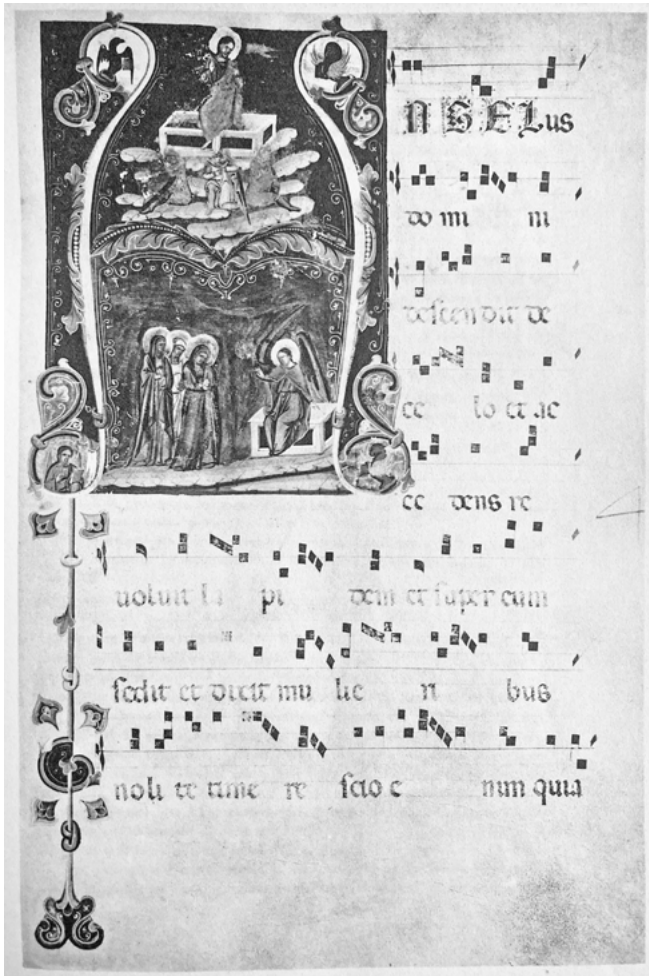 NGELus
do mi ni
descendit de
ce lo et ac
ce dens re
uoluit la pi dem et super eum
sedit et dixit mu lie ri bus
noli te time re scio e nim quia